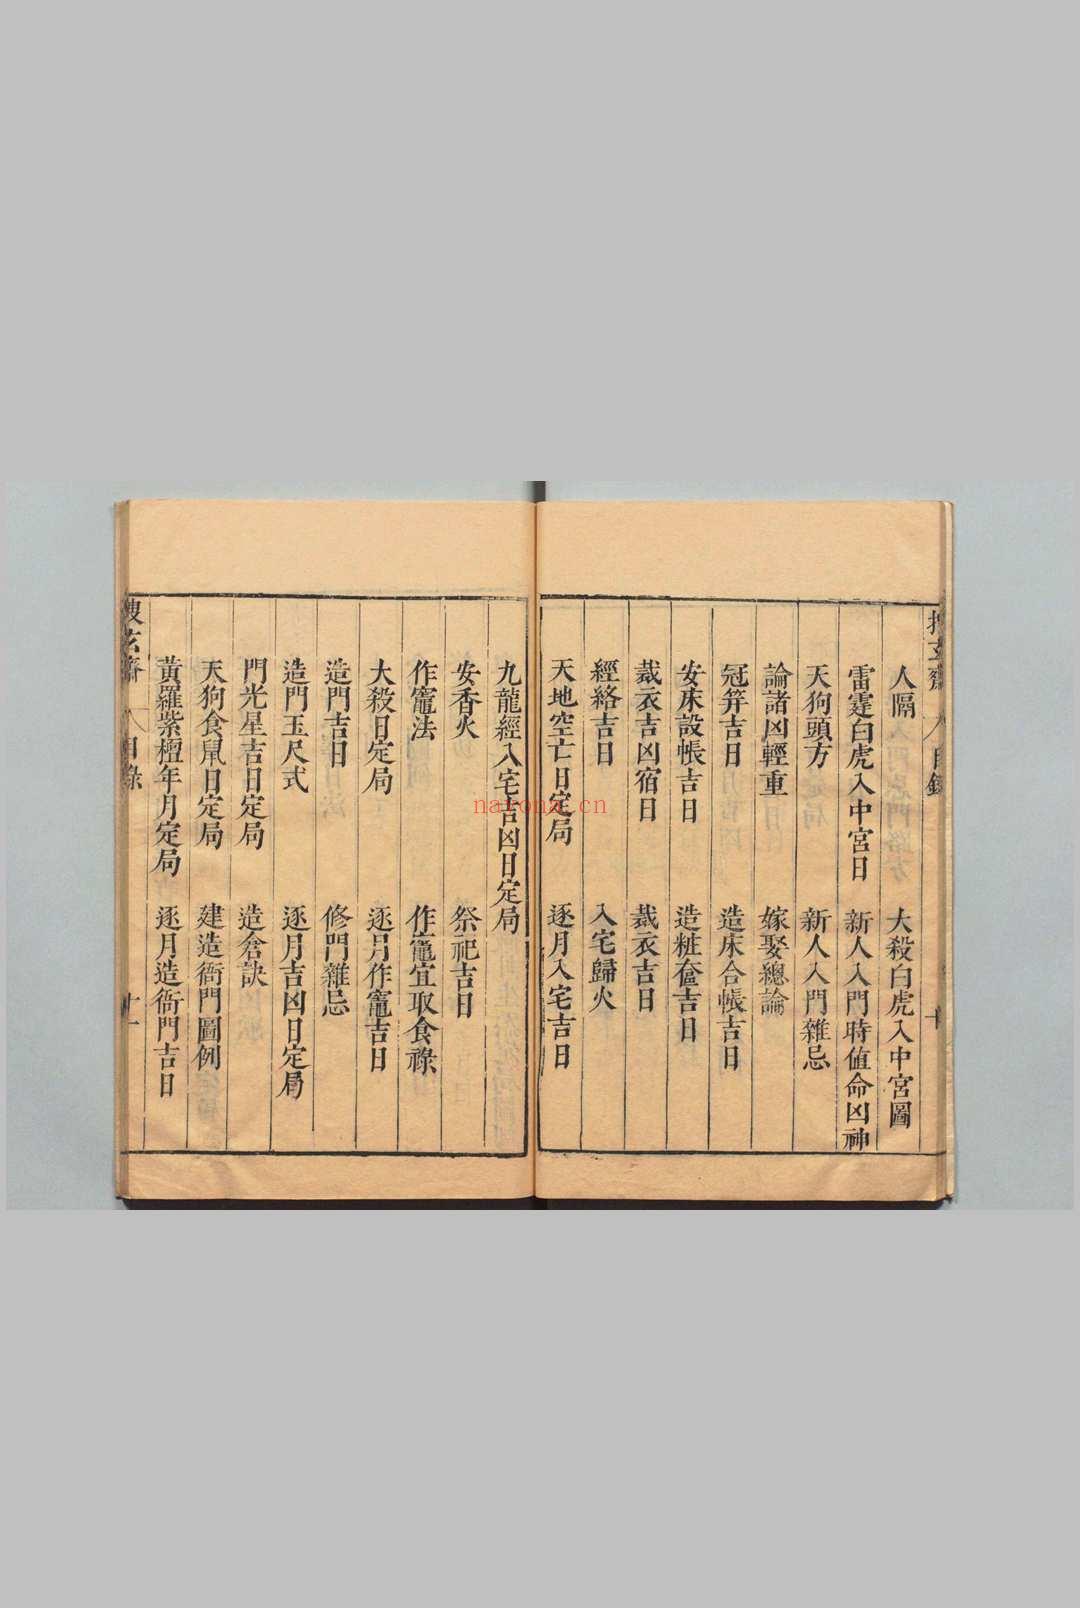 搜玄齋 目錄 十
人隔 大殺白虎入中宮圖
雷霆白虎入中宮日 新人入門時值命凶神
天狗頭方 新人入門雜忌
論諸凶輕重 嫁娶總論
冠笄吉日 造床合帳吉日
安床設帳吉日 造粧奩吉日
裁衣吉凶宿日 裁衣吉日
經絡吉日 入宅歸火
天地空亡日定局 逐月入宅吉日
九龍經入宅吉凶日定局
安香火 祭祀吉日
作竈法 作竈宜取食祿
大殺日定局 逐月作竈吉日
造門吉日 修門雜忌
造門玉尺式 逐月吉凶日定局
門光星吉日定局 造倉訣
天狗食鼠日定局 建造衙門圖例
黃羅紫檀年月定局 逐月造衙門吉日
搜玄齋 目錄 十一
nayona.cn